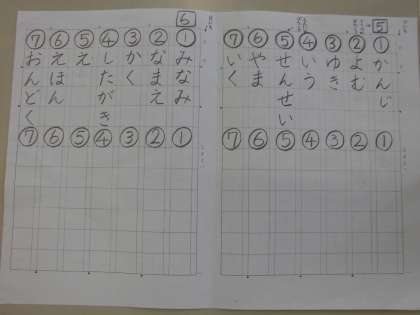 5
①かんじ
②よむ
③ゆき
④いう
⑤せんせい
⑥やま
⑦いく
①
②
③
④
⑤
⑥
⑦
6
①みなみ
②なまえ
③かく
④したがき
⑤え
⑥えほん
⑦おんどく
①
②
③
④
⑤
⑥
⑦